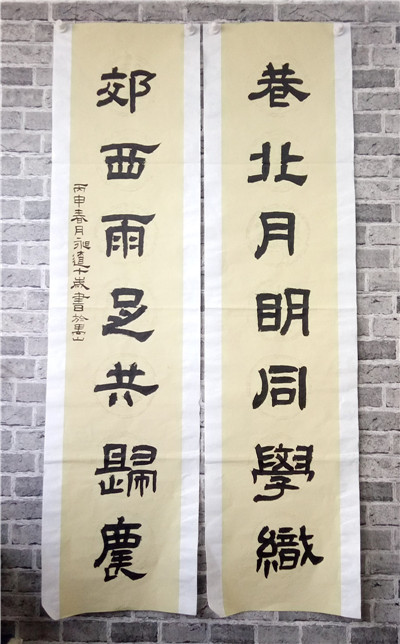 巷北月明同學織
郊西雨足共歸農
丙申春月道十歲書於禺山